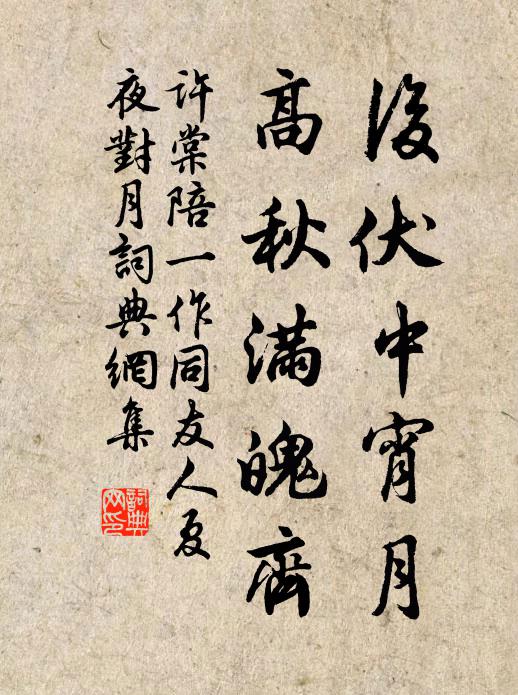 後伏中宵月
高秋滿魄齊
許棠陪一作同友人夏
夜對月詞典網集
詞典
网印